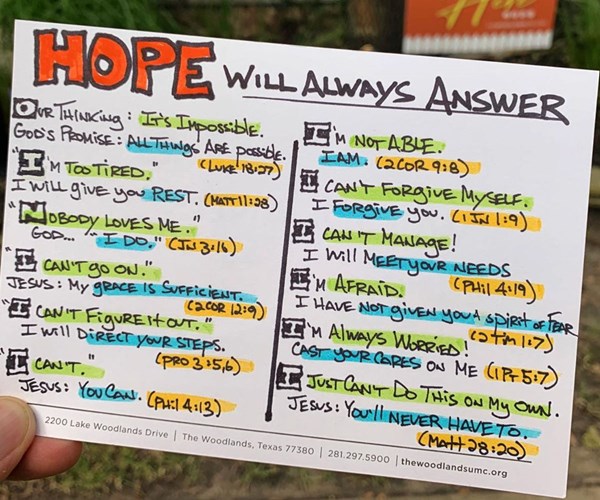 Hope
HOPE WILL ALWAYS ANSWER
OUR THINKING: It's Impossible.
GOD'S PROMISE: ALL THINGS ARE possible.
(LUKE 18:27)
"I'M TOO TIRED."
I WILL give you REST. (MATT 11:28)
"NOBODY LOVES ME."
GOD... "I DO." (JN 3:16)
"I CAN'T go ON."
JESUS: My gRACE IS SUFFICIENT.
(2COR 12:9)
"I CAN'T FIGURE IT OUT."
I will DIRECT YOUR STEPS.
(PRO 3:5,6)
"I CAN'T."
JESUS: YOU CAN. (PHIL 4:13)
I'M NOT ABLE.
I AM. (2COR 9:8)
I CAN'T FORGIVE MYSELF.
I FORGIVE you. (1 JN 1:9)
I CAN'T MANAGE!
I will MEET YOUR NEEDS
(PHIL 4:19)
I'M AFRAID.
I HAVE NOT given you A spirit of FEAR
(2 tim 1:7)
I'M Always WORRIED!
CAST YOUR CARES ON ME (1 Pt 5:7)
I JUST CAN'T DO THIS ON MY OWN.
JESUS: You'll NEVER HAVE TO.
(MATT 28:20)
2200 Lake Woodlands Drive | The Woodlands, Texas 77380 | 281.297.5900 | thewoodlandsumc.org